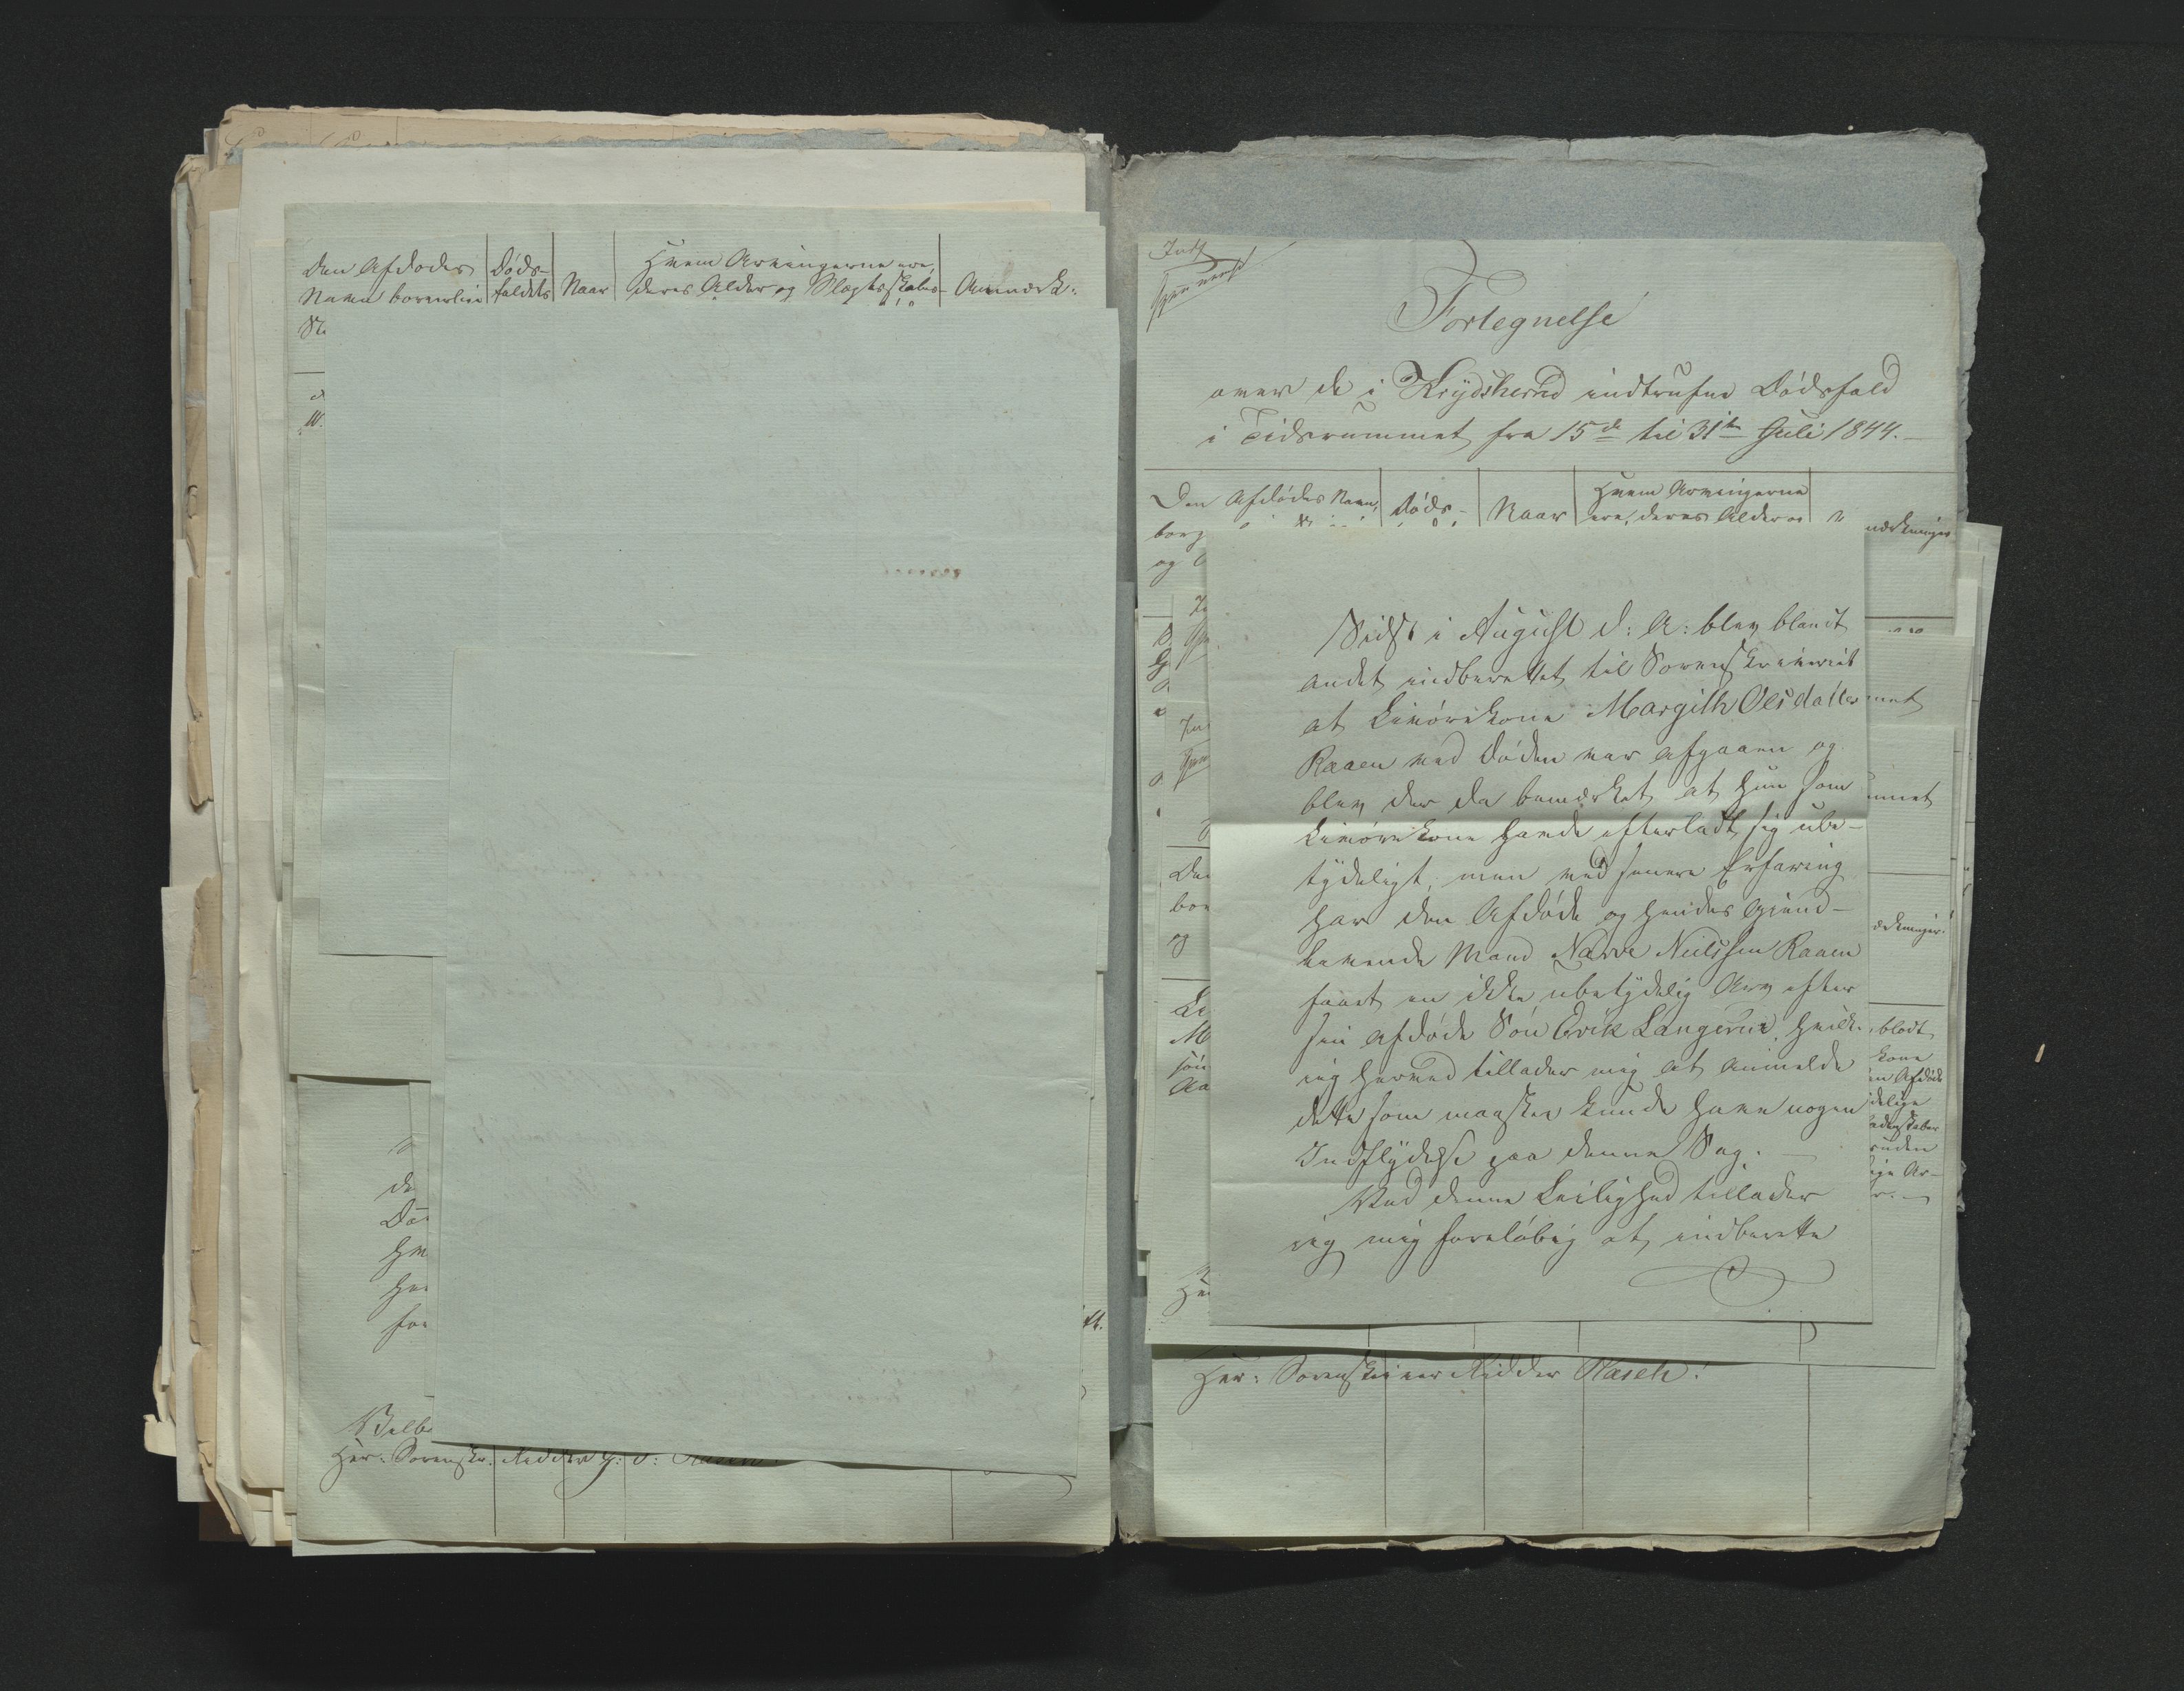 Den Afdødes
Navn borgerlige
Døds-
faldets
Naar
Hvem Arvingerne ere,
deres Alder og Slægtskabs-
Anmærk:
Her: Sorenskr. Ridder
Indf
Fortegnelse
over de i Krydsherred indtrufne Dødsfald
i Tidsrummet fra 15de til 31te Juli 1844.
Den Afdødes Navn,
borg
og
Døds-
Naar
Hvem Arvingerne
ere, deres Alder og
mærkninger
Sidst i August d: A: blev blandt
andet indberettet til Sorenskriveriet
at Livørekone Margith Olsdatter
Raaen ved Døden var afgaaen og
blev der da bemærket at hun som
Livørekone havde efterladt sig ube-
tydeligt, men ved senere Erfaring
har den Afdøde og hendes gjend-
levende Mand Narve Nielssen Raaen
faaet en ikke ubetydelig Arv efter
sin afdøde Søn Erik Langerud, hvilk-
jeg herved tillader mig at anmelde
dette som maaskee kunde have nogen
Indflydelse paa denne Sag.
Ved denne Leilighed tillader
jeg mig foreløbig at indberette
blodt
kone
en Afdøde
delige
adenskaber
uden
ige Ar-
Her: Sorenskriver Ridder Rasch!